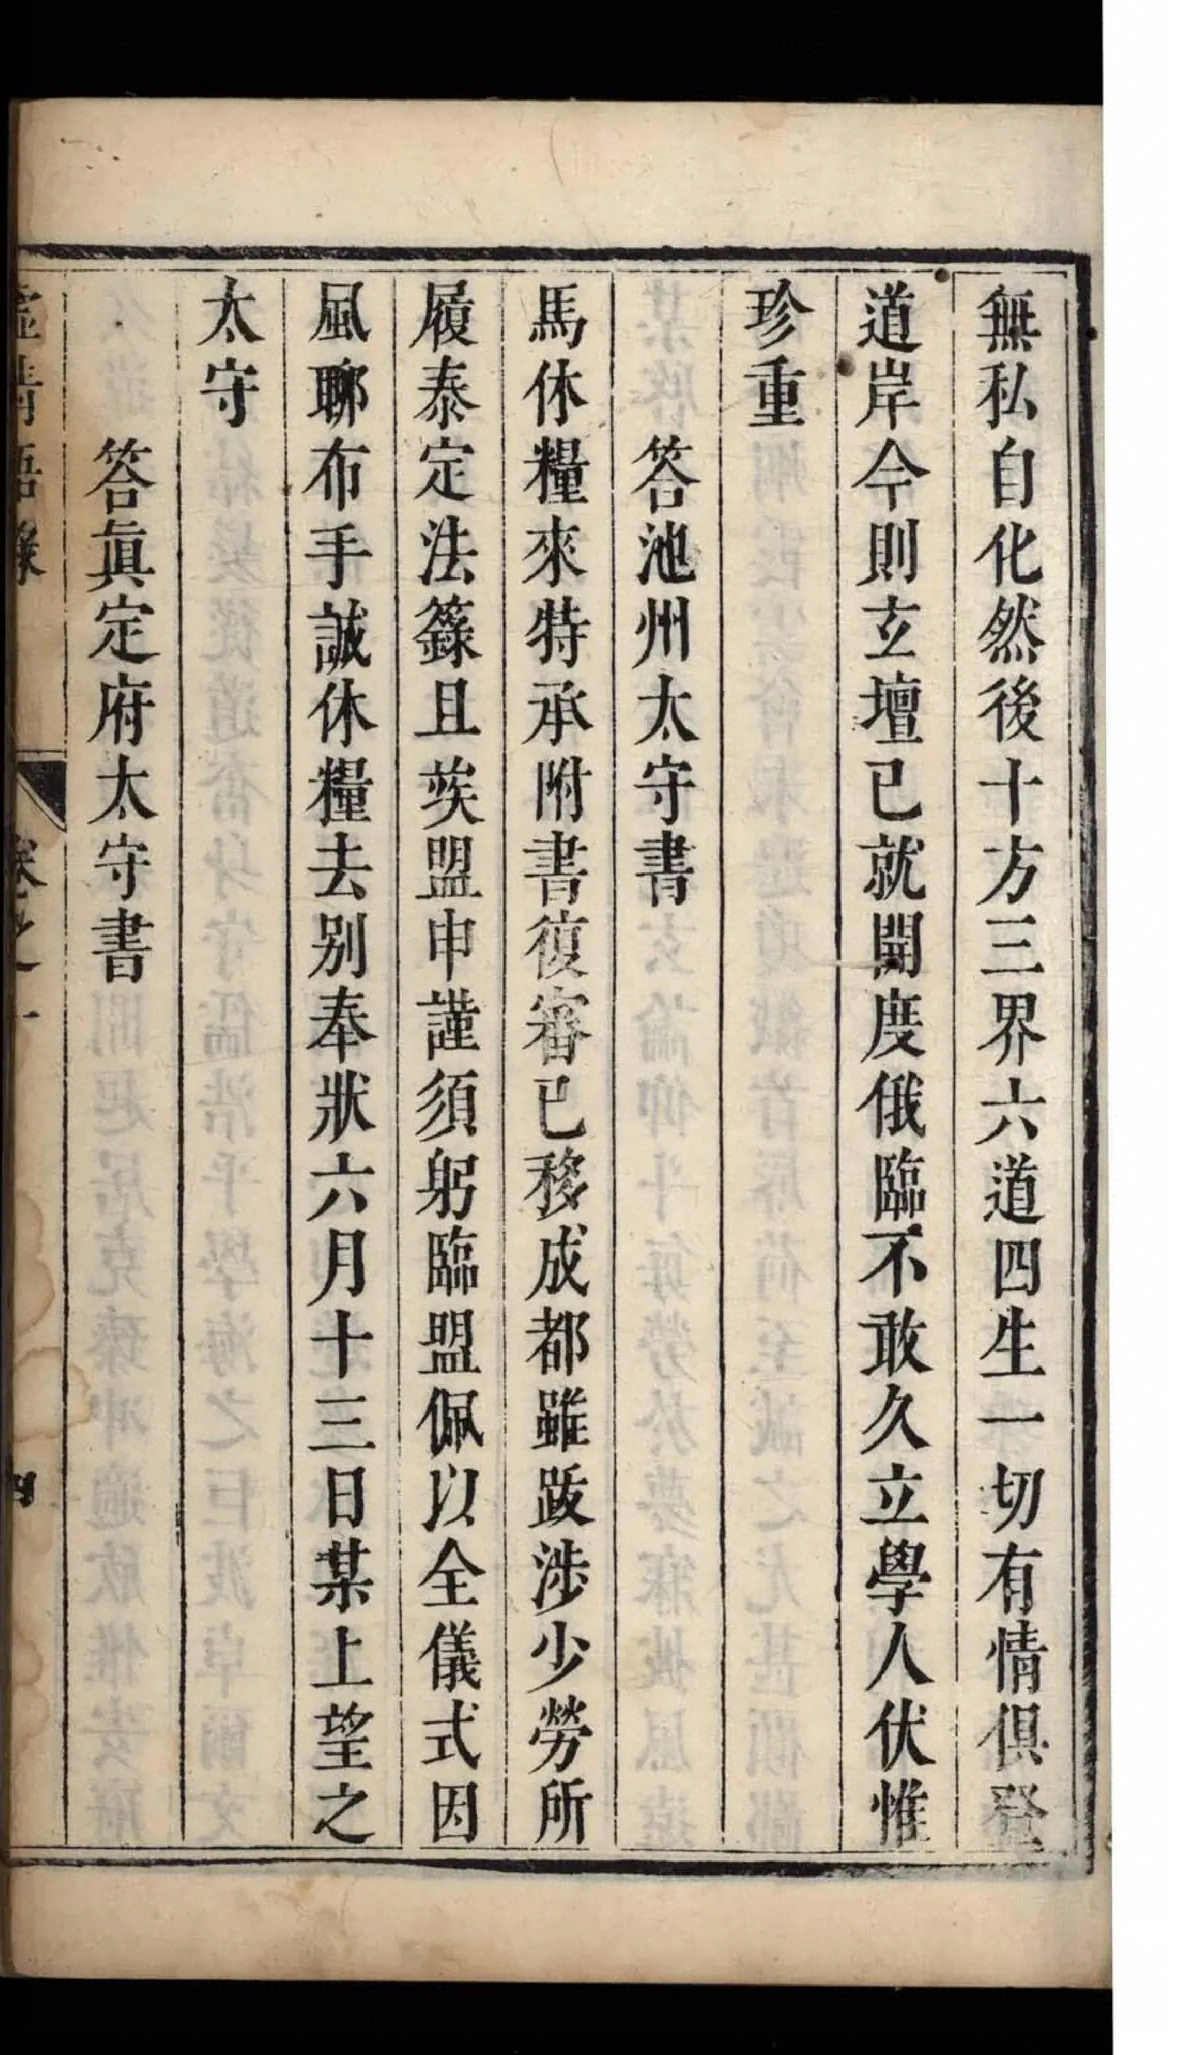 無私自化然後十方三界六道四生一切有情俱登
道岸今則玄壇已就開度俄臨不敢久立學人伏惟
珍重
答池州太守書
馬休糧來特承附書復審已移成都雖跋涉少勞所
履泰定法籙且俟盟申謹須躬臨盟佩以全儀式因
風聊布手誠休糧去别奉狀六月十三日某上望之
太守
答眞定府太守書